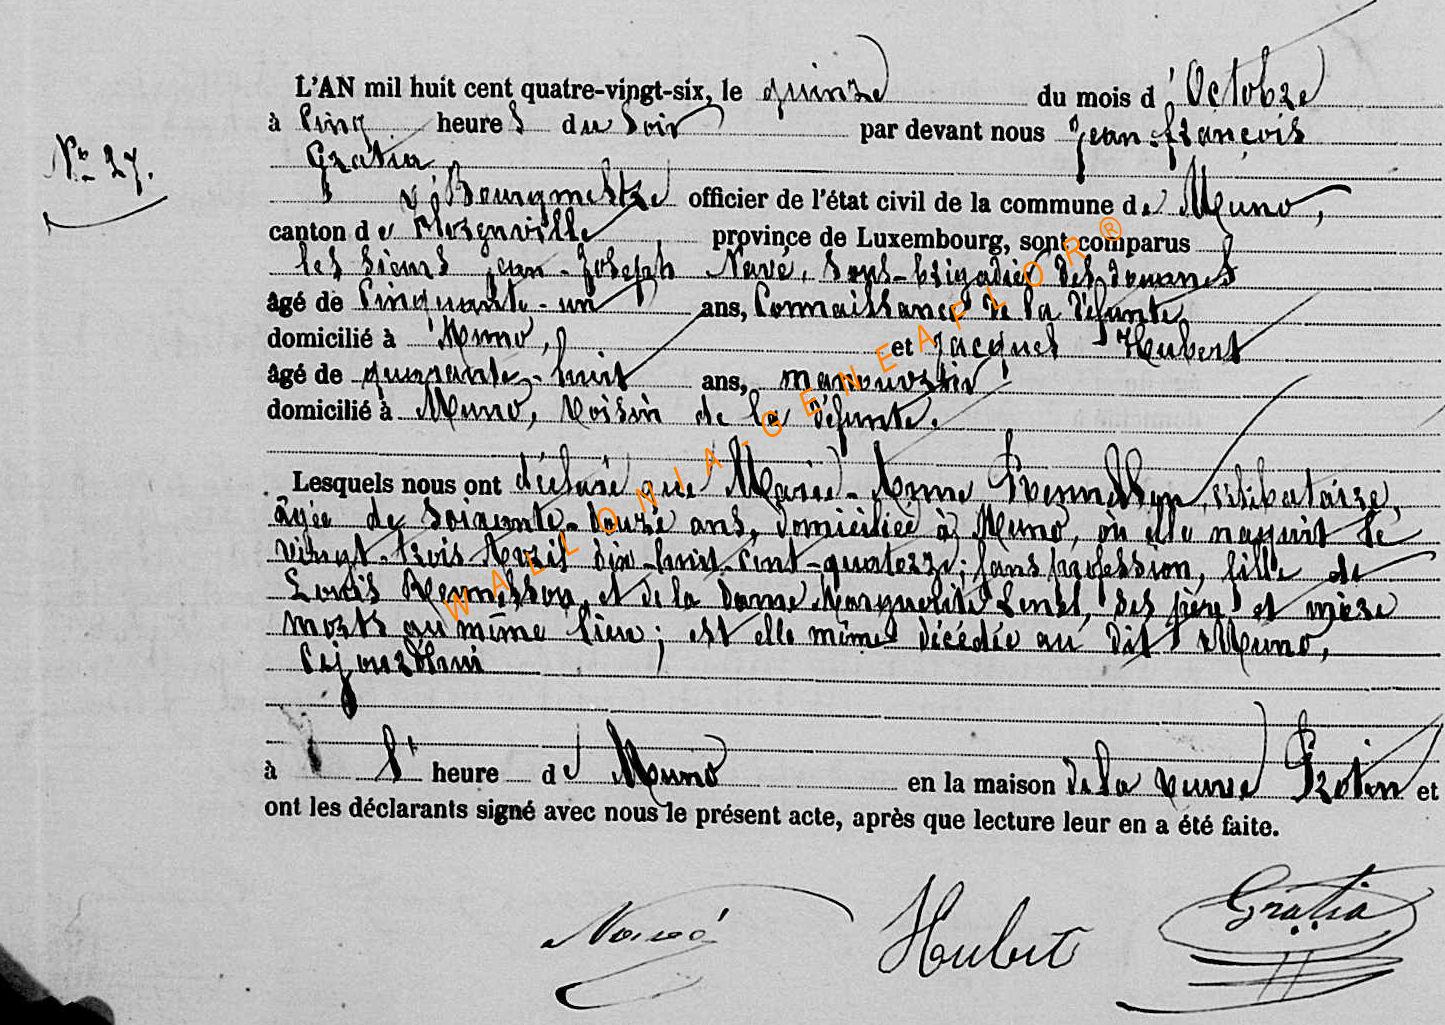 L'AN mil huit cent quatre-vingt-six, le quinze du mois d'Octobre
à Cinq heures du soir par devant nous Jean-françois
N° 27.
Gratia
Bourgmestre officier de l'état civil de la commune de Muno,
canton de province de Luxembourg, sont comparus
les sieurs Jean-Joseph Navé, sous-brigadier des douanes
âgé de Cinquante-un ans, Connaissance de la défunte,
domicilié à Muno, et Jacques Hubert
âgé de quarante-huit ans, manouvrier
domicilié à Muno, Voisin de la défunte.
Lesquels nous ont déclaré que Marie-Anne célibataire,
âgée de soixante-douze ans, domiciliée à Muno, où elle naquit le
vingt-trois Avril dix-huit-cent-quatorze; sans profession, fille de
Louis et de la Dame Marguerite ses père et mère
morts au même lieu; est elle même décédée au dit Muno,
Cejourdhui
à heure de Muno en la maison de la veuve et
ont les déclarants signé avec nous le présent acte, après que lecture leur en a été faite.
Navé Hubert Gratia
WALLONIA-GENEAFLOR®